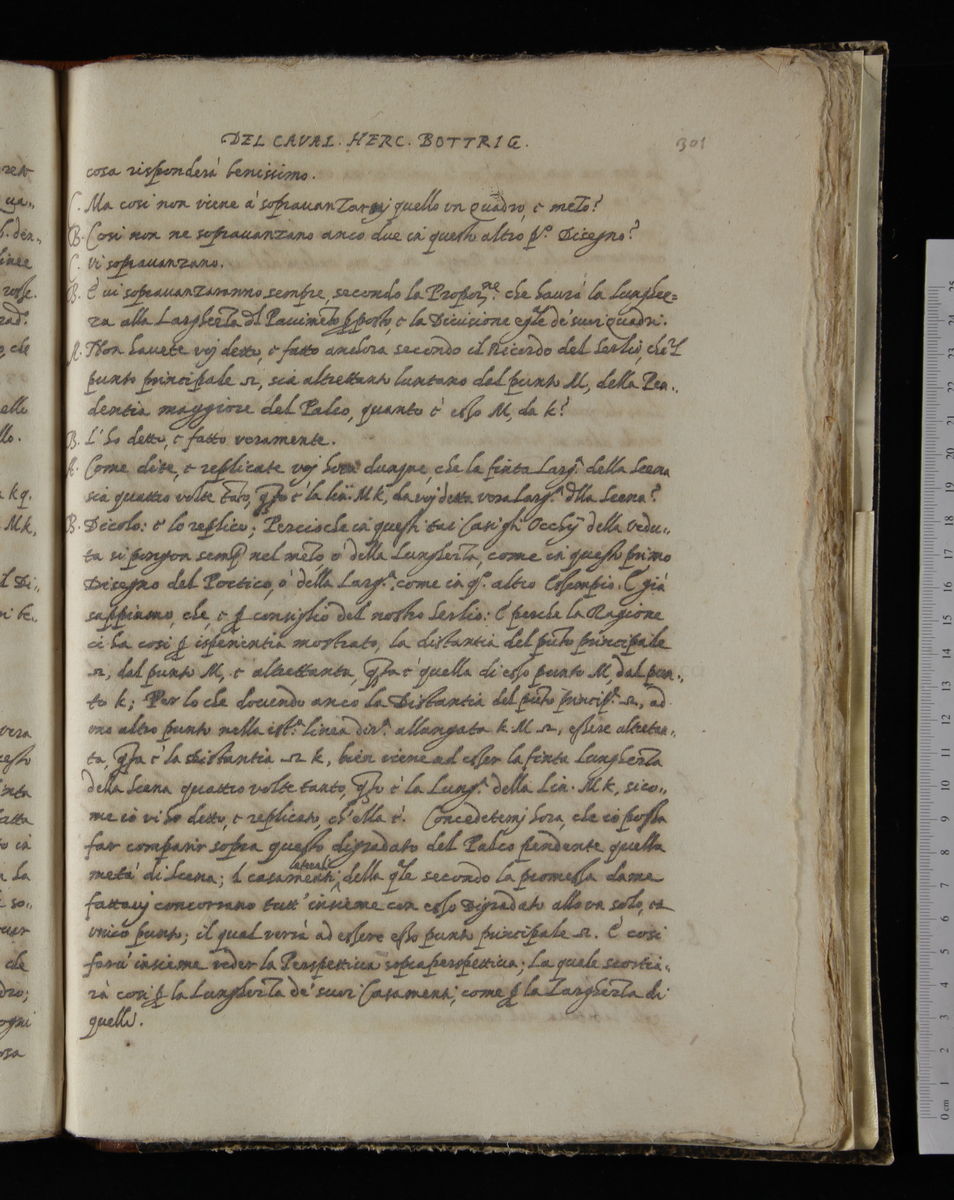 DEL CAVAL. HERC. BOTTRIG. 301
cosa risponderà benissimo.
C. Ma cosi non viene à sopravanzarvj quello un quadro, e mezo?
B. Cosi non ne sopravanzano anco due in questo altro p.º Disegno?
C. vi sopravanzano.
B. E vi sopravanzaranno sempre, secondo la Propor.ne che haurà la Lunghez=
za alla Larghezza dl Pavimeto pposto, e la Divisione eqle de' suoi quadri.
A. Non havete voj detto, e fatto anchora secondo il Ricordo del Serlio, che'l
punto principale Ω, sia altrettanto luntano dal punto M, della Pen..
dentia maggiore del Palco, quanto è esso M, da k?
B. L'ho detto, e fatto veramente.
A. Come dite, e replicate voj hora dunque, che la finta Larg.ª della Scena
sia quattro volte tato, qto è la lin. M k, da voj detta vera Larg.ª dlla Scena?
B. Dicolo: e lo replico; Percioche in questi tai Casi gli Occhij della vedu..
ta si pongon semp nel mezo, ò della Lunghezza, come in questo primo
Disegno del Poetico, ò della Larg.ª come in q.º altro Essempio. E già
sappiamo, che, e p consiglio del nostro Serlio: E perche la Ragione
ci ha cosi p isperientia mostrato, la distantia del puto principale
Ω, dal punto M, e altrettanta, qta è quella di esso punto M, dal pun..
to k; Per lo che dovendo anco la Distantia del puto princip.ª Ω, ad
uno altro punto nella ist.ª linea dir.ª allungata k M Ω, essere altretan..
ta, qta è la distantia Ω k, bien viene ad esser la finta Lunghezza
della Scena quattro volte tanto, qto è la Lung.ª della Lin. M k, sico..
me io vi ho detto, e replicato, ch'ella è. Concedetemj hora, che io possa
far comparir sopra questo digradato del Palco pendente quella
metà di Scena; i casamenti laterali della qle secondo la promessa dame
fattavj concorrano tutt' insieme con esso Digradato allo un solo, et
unico punto; il qual verrà ad essere esso punto principale Ω. E cosi
farà insieme veder la Perspettiva sopraperspettiva; La quale scortia..
rà cosi p la Lunghezza de' suoi Casamenti, come p la Larghezza di
quelli.